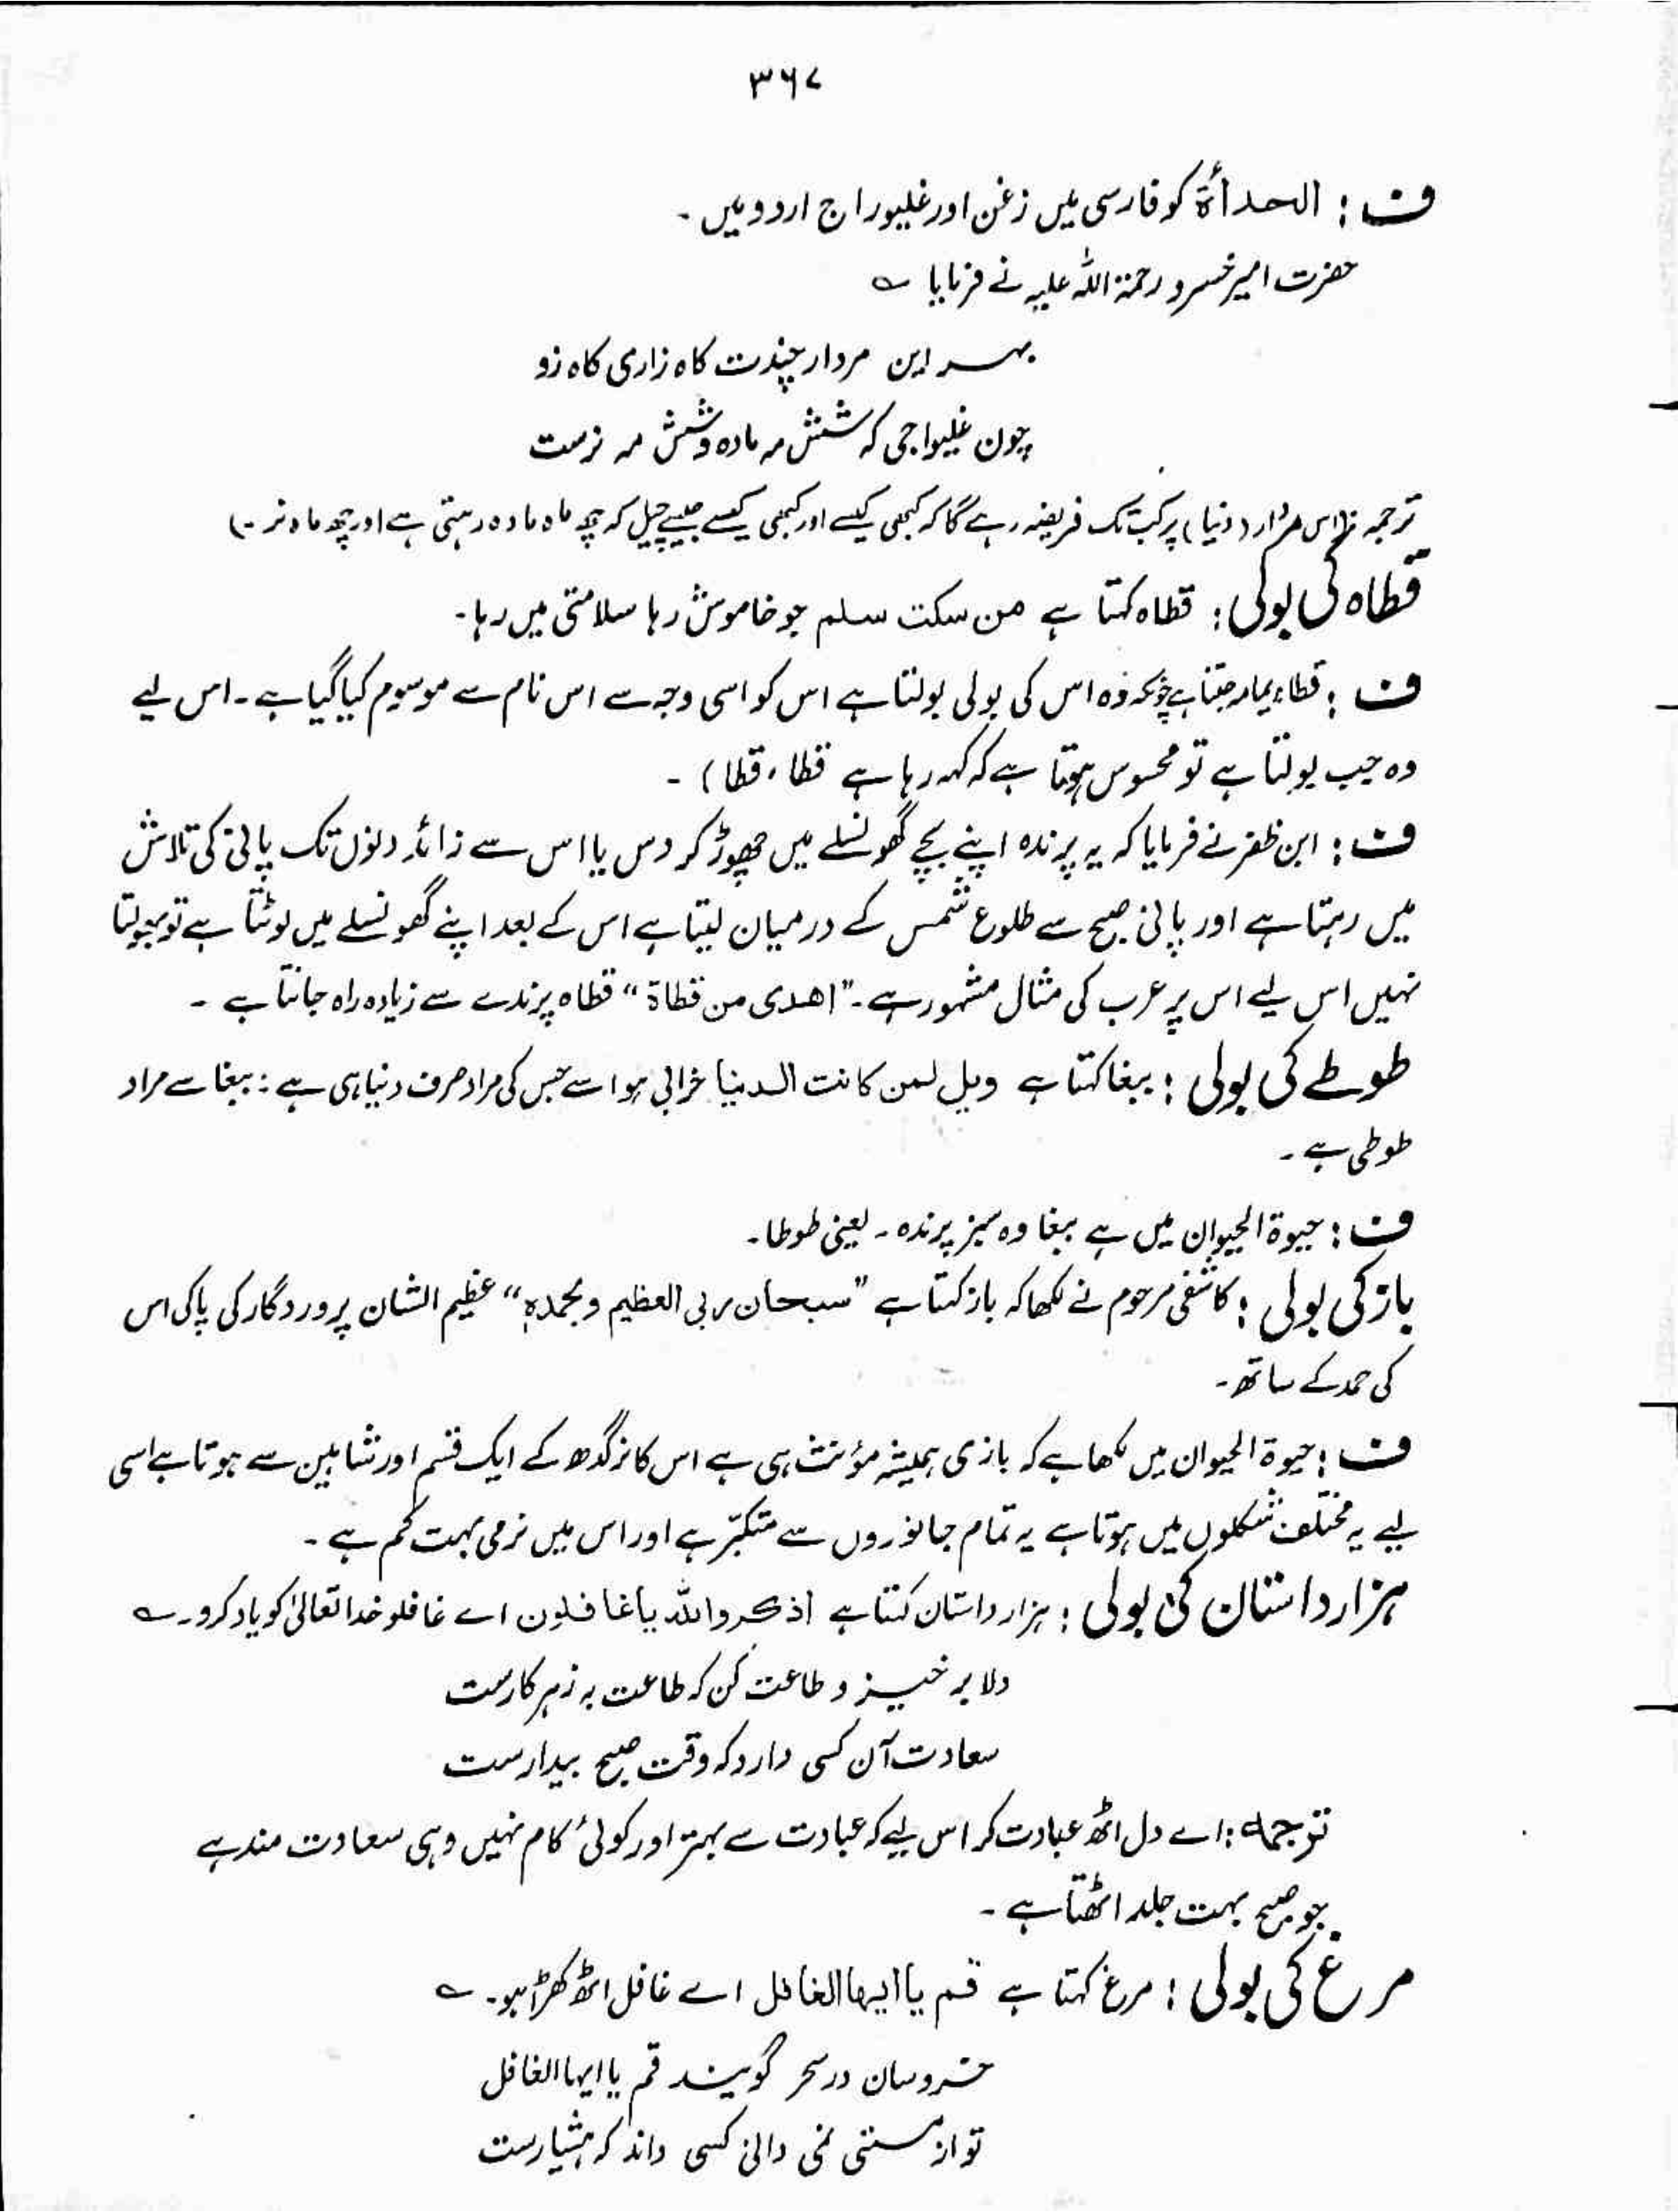 ۳۶۷
ف : الحدأۃ کو فارسی میں زغن اور غلیوراج اردو میں ۔
حضرت امیر خسرو رحمۃ اللہ علیہ نے فرمایا ؎
بہر این مردار چندت گاہ زاری گاہ زو
چون غلیواجی کہ شش مہ مادہ و شش مہ نرست
ترجمہ : (اس مردار (دنیا) پر کب تک فریفتہ رہے گا کہ کبھی کیسے اور کبھی کیسے جیسے چیل کہ چھ ماہ مادہ رہتی ہے اور چھ ماہ نر ۔)
قطاہ کی بولی : قطاہ کہتا ہے من سکت سلم جو خاموش رہا سلامتی میں رہا ۔
ف : قطاہ چونکہ وہ اس کی بولی بولتا ہے اس کو اسی وجہ سے اس نام سے موسوم کیا گیا ہے ۔ اس لیے
وہ جب بولتا ہے تو محسوس ہوتا ہے کہ کہہ رہا ہے قطا ، قطا ) ۔
ف : ابن ظفر نے فرمایا کہ یہ پرندہ اپنے بچے گھونسلے میں چھوڑ کر دس یا اس سے زائد دنوں تک پانی کی تلاش
میں رہتا ہے اور پانی صبح سے طلوع شمس کے درمیان لیتا ہے اس کے بعد اپنے گھونسلے میں لوٹتا ہے تو بھولتا
نہیں اس لیے اس پر عرب کی مثال مشہور ہے ۔ "اھدی من قطاۃ" قطاہ پرندے سے زیادہ راہ جانتا ہے ۔
طوطے کی بولی : ببغا کہتا ہے ویل لمن کانت الدنیا خرابی ہو اسے جس کی مراد صرف دنیا ہی ہے : ببغا سے مراد
طوطی ہے ۔
ف : حیوۃ الحیوان میں ہے ببغا وہ سبز پرندہ ۔ یعنی طوطا ۔
باز کی بولی : کاشفی مرحوم نے لکھا کہ باز کہتا ہے "سبحان ربی العظیم وبحمدہٖ" عظیم الشان پروردگار کی پاکی اس
کی حمد کے ساتھ ۔
ف : حیوۃ الحیوان میں لکھا ہے کہ بازی ہمیشہ مؤنث ہی ہے اس کا نر گدھ کے ایک قسم اور شاہین سے ہوتا ہے اسی
لیے یہ مختلف شکلوں میں ہوتا ہے یہ تمام جانوروں سے متکبّر ہے اور اس میں نرمی بہت کم ہے ۔
ہزار داستان کی بولی : ہزار داستان کہتا ہے اذکروا اللہ یا غافلون اے غافلو خدا تعالیٰ کو یاد کرو ۔ ؎
دلا بر خیز و طاعت کن کہ طاعت بہ زہر کارست
سعادت آن کسی دارد کہ وقت صبح بیدارست
ترجمہ : اے دل اٹھ عبادت کر اس لیے کہ عبادت سے بہتر اور کوئی کام نہیں وہی سعادت مند ہے
جو صبح بہت جلد اٹھتا ہے ۔
مرغ کی بولی : مرغ کہتا ہے قم یا ایھا الغافل اے غافل اٹھ کھڑا ہو ۔ ؎
خروسان در سحر گویند قم یا ایھا الغافل
تو از مستی نمی دانی کسی داند کہ ہشیارست